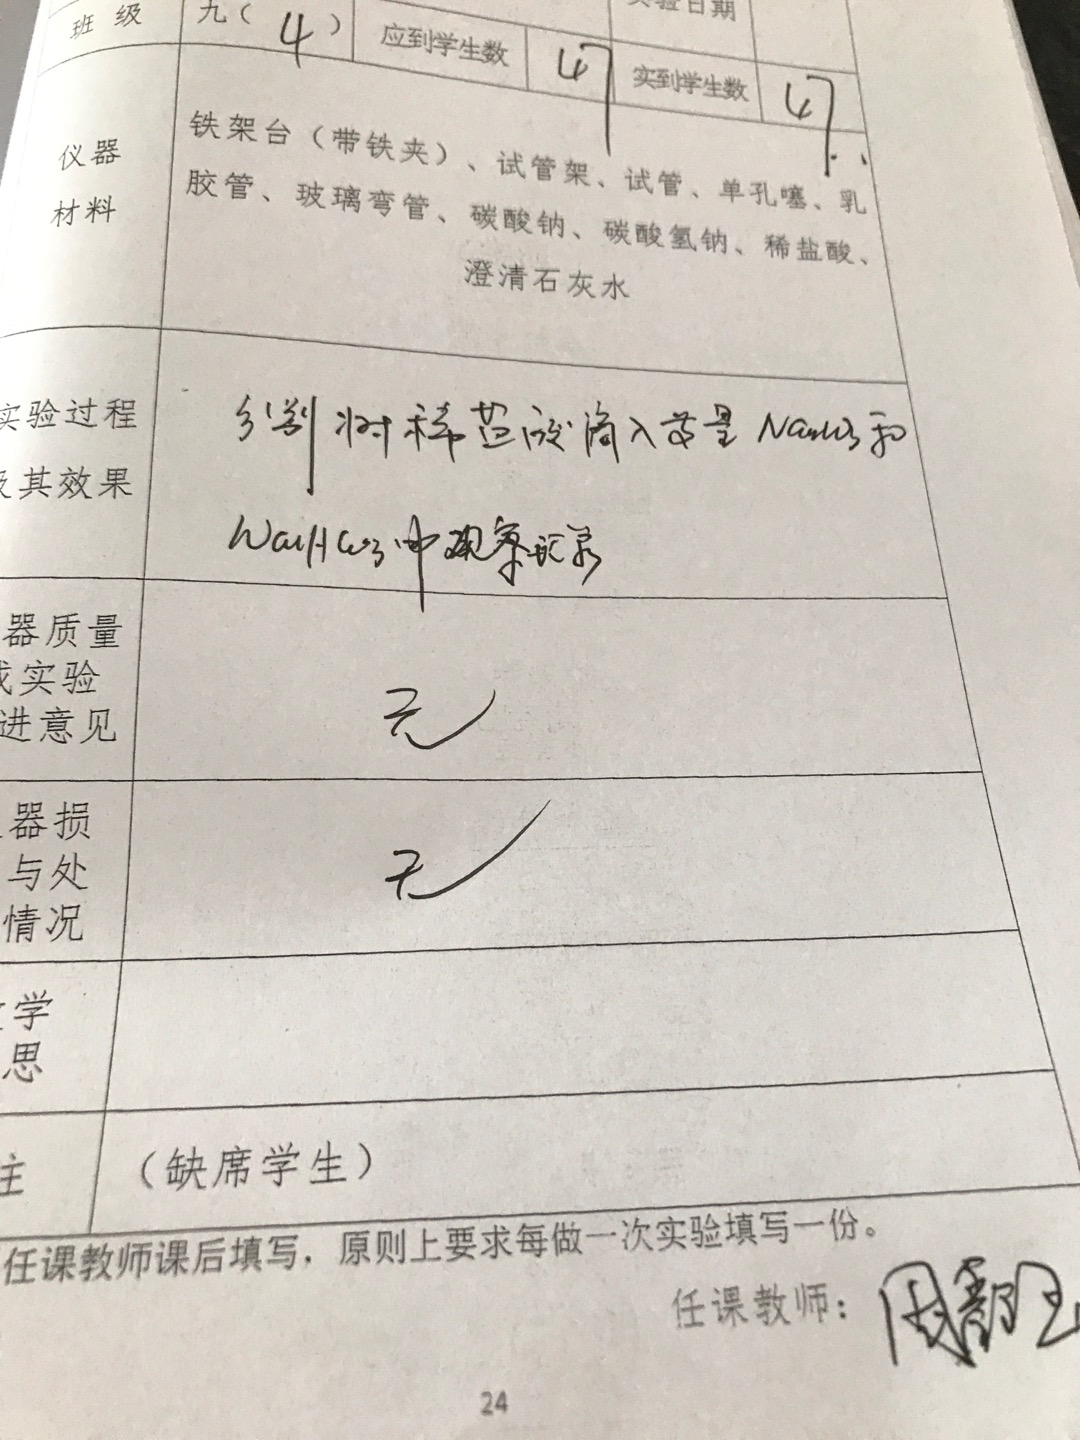 班级 九（4） 应到学生数 47 实到学生数 47
验日期
仪器
材料
铁架台（带铁夹）、试管架、试管、单孔噻、乳
胶管、玻璃弯管、碳酸钠、碳酸氢钠、稀盐酸、
澄清石灰水
实验过程
及其效果
分别将稀盐酸滴入少量Na2CO3和
NaHCO3中观察记录
器质量
或实验
进意见
无
器损
与处
情况
无
学
思
主
（缺席学生）
任课教师课后填写，原则上要求每做一次实验填写一份。
任课教师：周
24